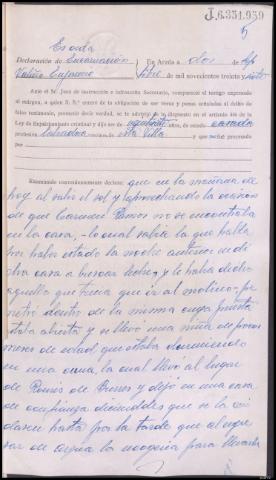 J.6.351.959
6
Esouta
Declaración de Encarnación
En Arzúa a dos de Sep
Valiño Enjamio
tiembre de mil novecientos treinta y siete
Ante el Sr. Juez de instrucción e infrascrito Secretario, compareció el testigo expresado
al margen, a quien S. S.ª enteró de la obligación de ser veraz y penas señaladas al delito de
falso testimonio, prometió decir verdad, se le advirtió de lo dispuesto en el artículo 446 de la
Ley de Enjuiciamiento criminal y dijo ser de años, de estado casada
profesión labradora vecina, de esta Villa y que será procesado
por
Examinado convenientemente declara: que en la mañana de
hoy al salir el sol y aprovechando la ocasión
de que Carmen Ramos no se encontraba
en la casa, lo cual sabía la que habla
por haber estado la noche anterior en di
cha casa a buscar y le había dicho
aquella que tenía que ir al molino, pe
netró dentro de la misma cuya puerta
estaba abierta y se llevó una niña de pocos
meses de edad que estaba durmiendo
en una cuna, la cual llevó al lugar
de de Burres y dejó en una casa
de confianza diciéndoles que se la cui
dasen hasta por la tarde que al regre
sar de Arzúa la recogería para llevarla